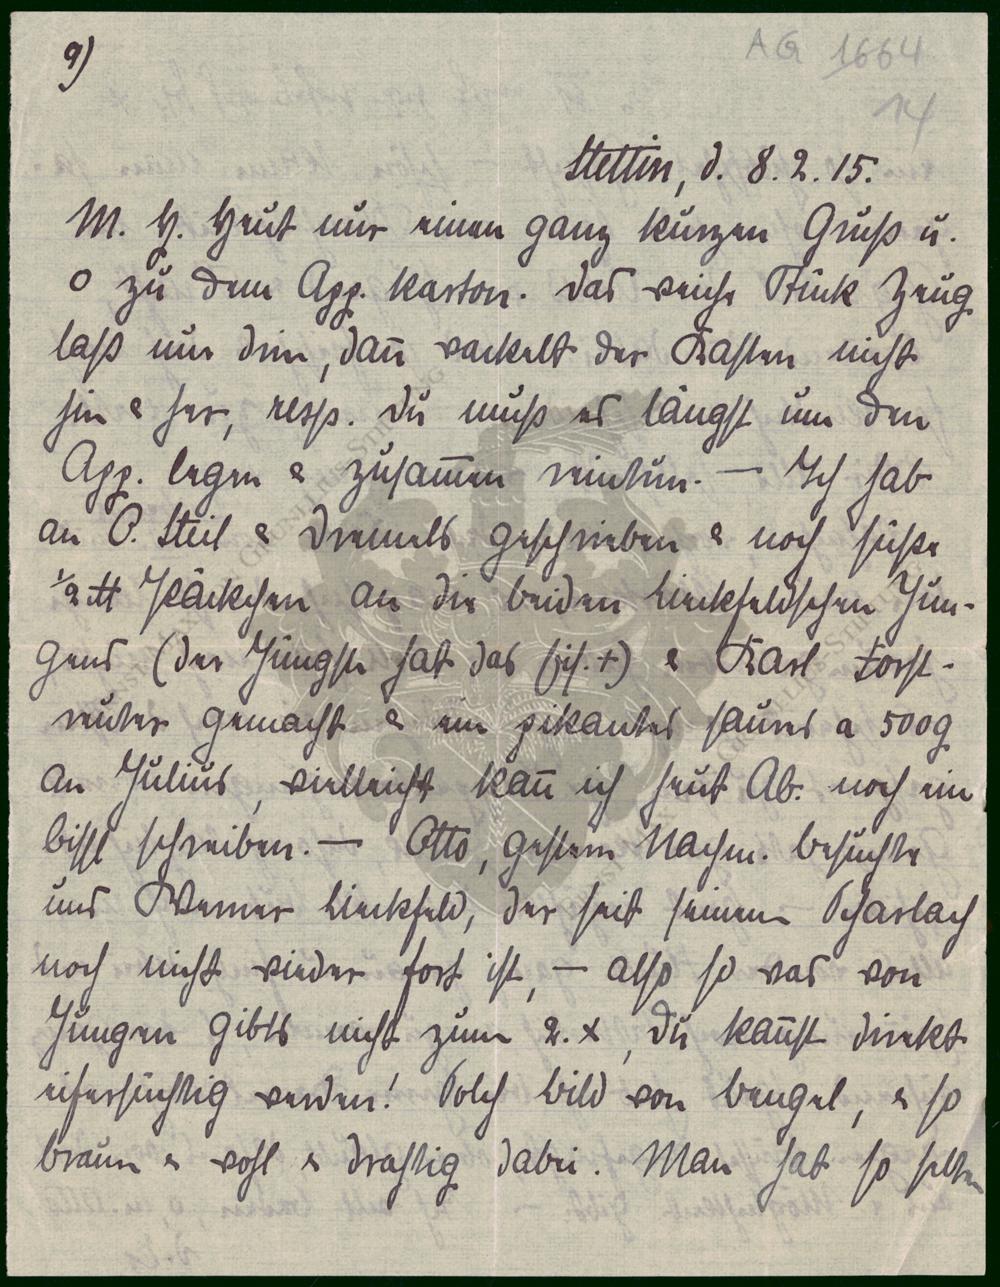 9)
AG 1664
14
Stettin, d. 8. 2. 15.
M. H. Heut nur einen ganz kurzen Gruß u.
o zu dem App. karton. Das weiche Stück Zeug
laß nur drin, dan̄ wackelt der Kasten nicht
hin & her, resp. Du mußt es längst um den
App. legen & zusam̄en reintun. — Ich hab
an P. Steil & Dremels geschrieben & noch süße
½ ℔ Päckchen an die beiden Lieckfeldschen Jun-
gens (der Jüngste hat das Eis. +) & Karl Forst-
reuter gemacht & ein pikantes saures a 500g
an Julius, vielleicht kan̄ ich heut Ab. noch ein
bissl schreiben. — Otto, gestern Nachm. besuchte
uns Werner Lieckfeld, der seit seinem Scharlach
noch nicht wieder fort ist, — also so was von
Jungen gibts nicht zum 2. x, Du kan̄st direkt
eifersüchtig werden! Solch Bild von Bengel, & so
braun & wohl & drahtig dabei. Man hat so selten